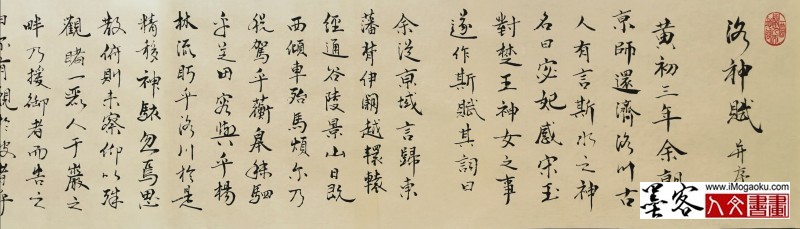 洛神賦 并序
黄初三年余朝
京師還濟洛川古
人有言斯水之神
名曰宓妃感宋玉
對楚王神女之事
遂作斯賦其詞曰
余從京域言歸東
藩背伊闕越轘轅
經通谷陵景山日既
西傾車殆馬煩尔乃
税駕乎蘅皋秣駟
乎芝田容與乎楊
林流眄乎洛川於是
精移神駭忽焉思
散俯則未察仰以殊
觀睹一麗人于巖之
畔乃援御者而告之
有覿於彼者乎
www.iMogaoku.com
墨客 人文書畫